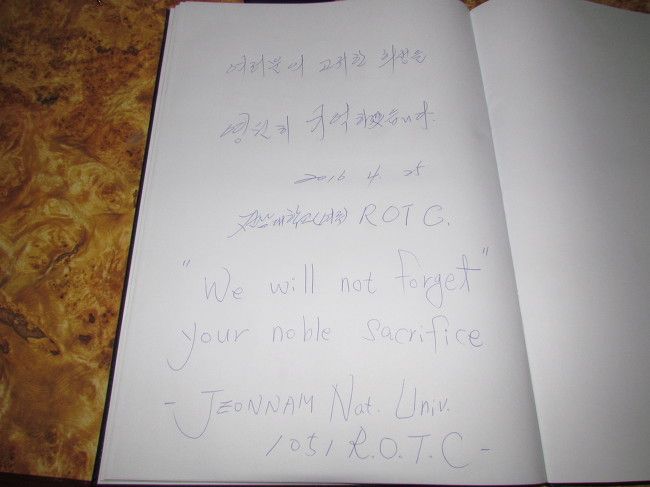 여러분의 고귀한 희생을
영원히 기억하겠습니다.
2016 4. 25
전남대학교(여수) ROTC.
"We will not forget"
your noble sacrifice
- JEONNAM Nat. Univ.
1051 R.O.T.C -